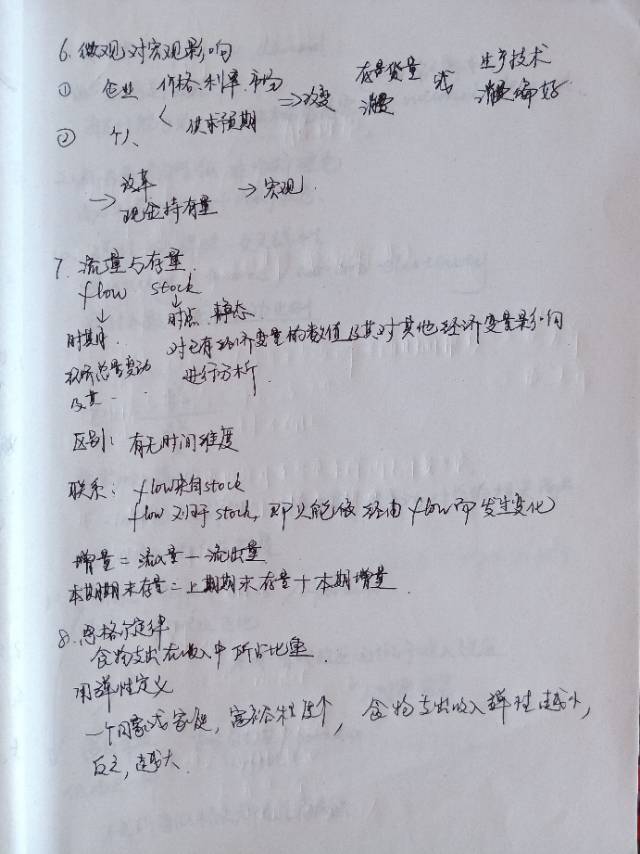 6. 微观对宏观影响
① 企业 价格、利率、平均 存货量 或 生产技术
→改变 消费 消费偏好
② 个人 供求预期
→ 改革 → 宏观.
现金持有量
7. 流量与存量.
flow stock
↓ ↓
时期. 时点. 静态.
对已有经济变量的数值及其对其他经济变量影响
总量变动 进行分析.
及其
区别: 有无时间维度
联系: flow来自stock
flow 归于 stock, 即只能 经由 flow而发生变化
增量 = 流入量 - 流出量
本期期末存量 = 上期期末存量 + 本期增量.
8. 恩格尔定律
食物支出在收入中所占比重.
用弹性定义
一个国家或家庭, 富裕程度个, 食物支出收入弹性越小,
反之, 越大.